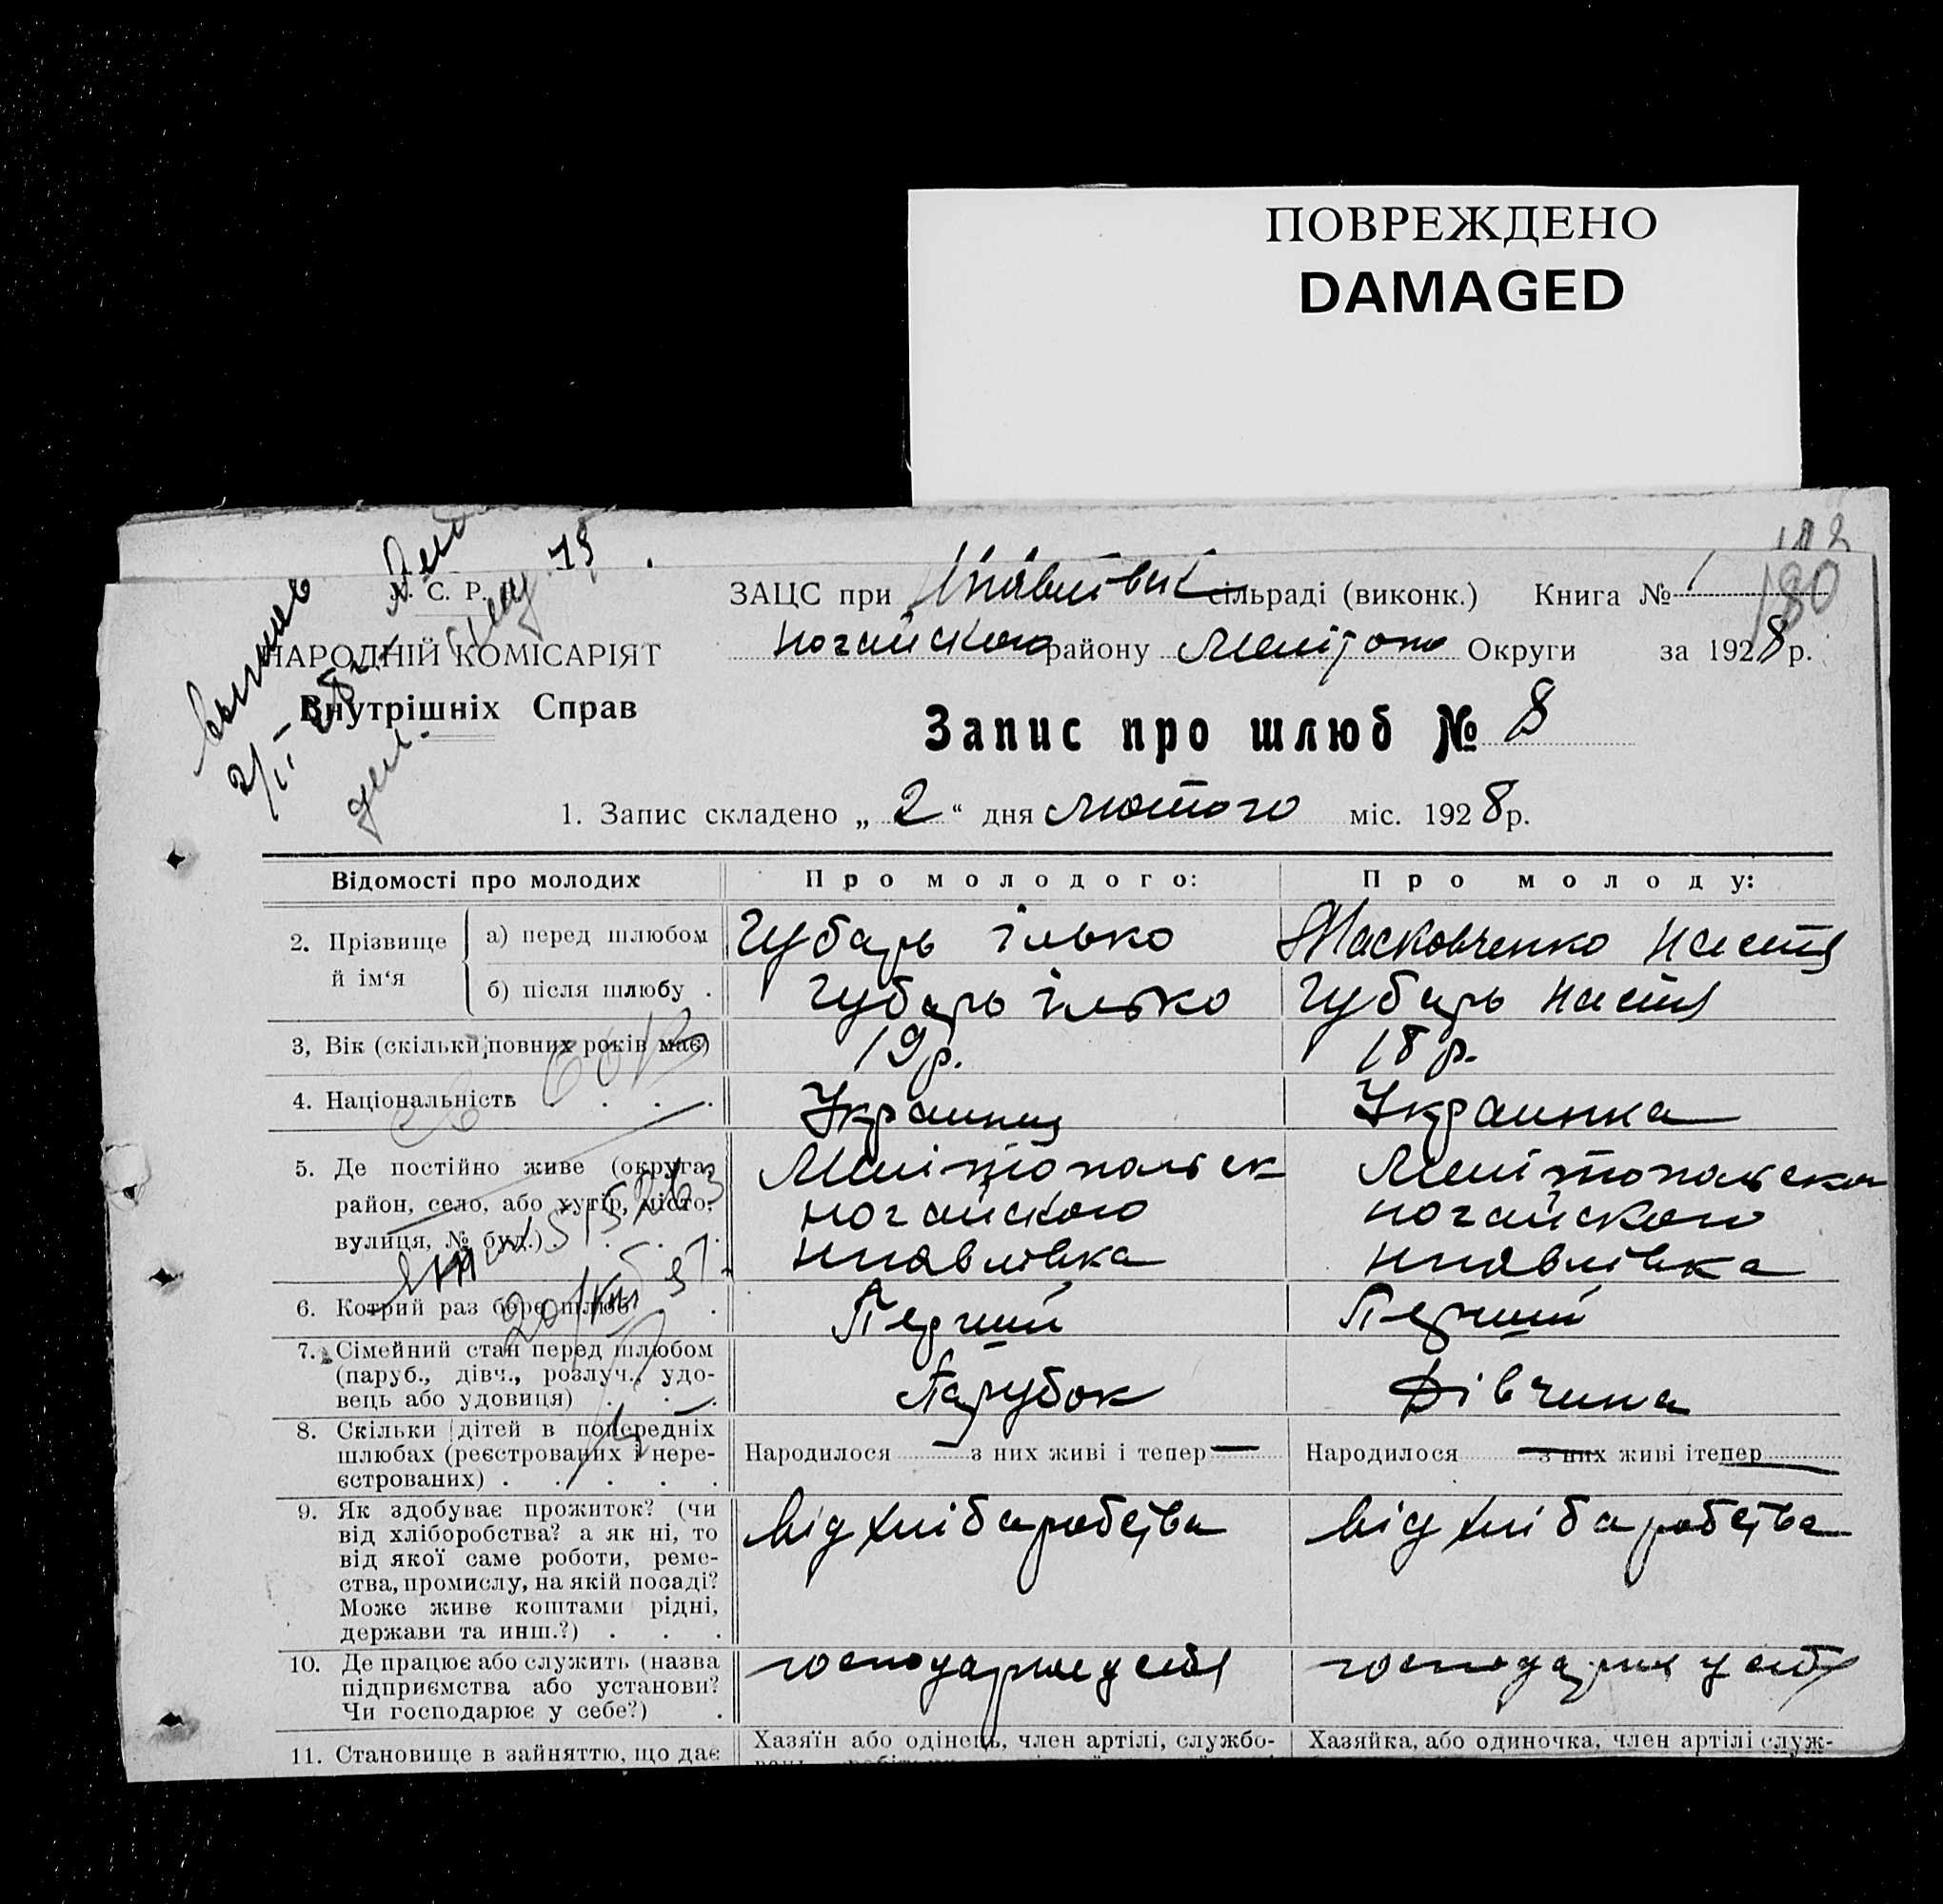 ПОВРЕЖДЕНО
DAMAGED
С. Р.
ЗАЦС при сільраді (виконк.) Книга № 1
180
НАРОДНІЙ КОМІСАРІЯТ
Ногайского району Меліто Округи за 1928 р.
Внутрішніх Справ
Запис про шлюб № 8
1. Запис складено „ 2 “ дня лютого міс. 1928 р.
Відомості про молодих Про молодого: Про молоду:
2. Прізвище й ім‘я а) перед шлюбом Губарь Ілько Масковченко Настя
б) після шлюбу . Губарь Ілько Губарь Настя
3, Вік (скільки повних років має) 19 р. 18 р.
4. Національність . . . . Украинец Украинка
5. Де постійно живе (округа, Мелітопольск Мелітопольска
район, село, або хутір, місто, ногайского ногайского
вулиця, № буд.) . . . . нпавлівка нпавлівка
6. Котрий раз бере шлюб . Перший Перший
7. Сімейний стан перед шлюбом
(паруб., дівч., розлуч., удо-
вець або удовиця) . . . Парубок Дівчина
8. Скільки дітей в попередніх
шлюбах (реєстрованих і нере- Народилося — з них живі і тепер — Народилося з них живі ітепер
єстрованих) . . . . .
9. Як здобуває прожиток? (чи від хлібаробства від хлібаробства
від хліборобства? а як ні, то
від якої саме роботи, реме-
ства, промислу, на якій посаді?
Може живе коштами рідні,
держави та инш.?) . . .
10. Де працює або служить (назва господарює у себя господарює у себя
підприємства або установи?
Чи господарює у себе?) .
11. Становище в зайняттю, що дає Хазяїн або одінець, член артілі, службо- Хазяйка, або одиночка, член артілі служ-